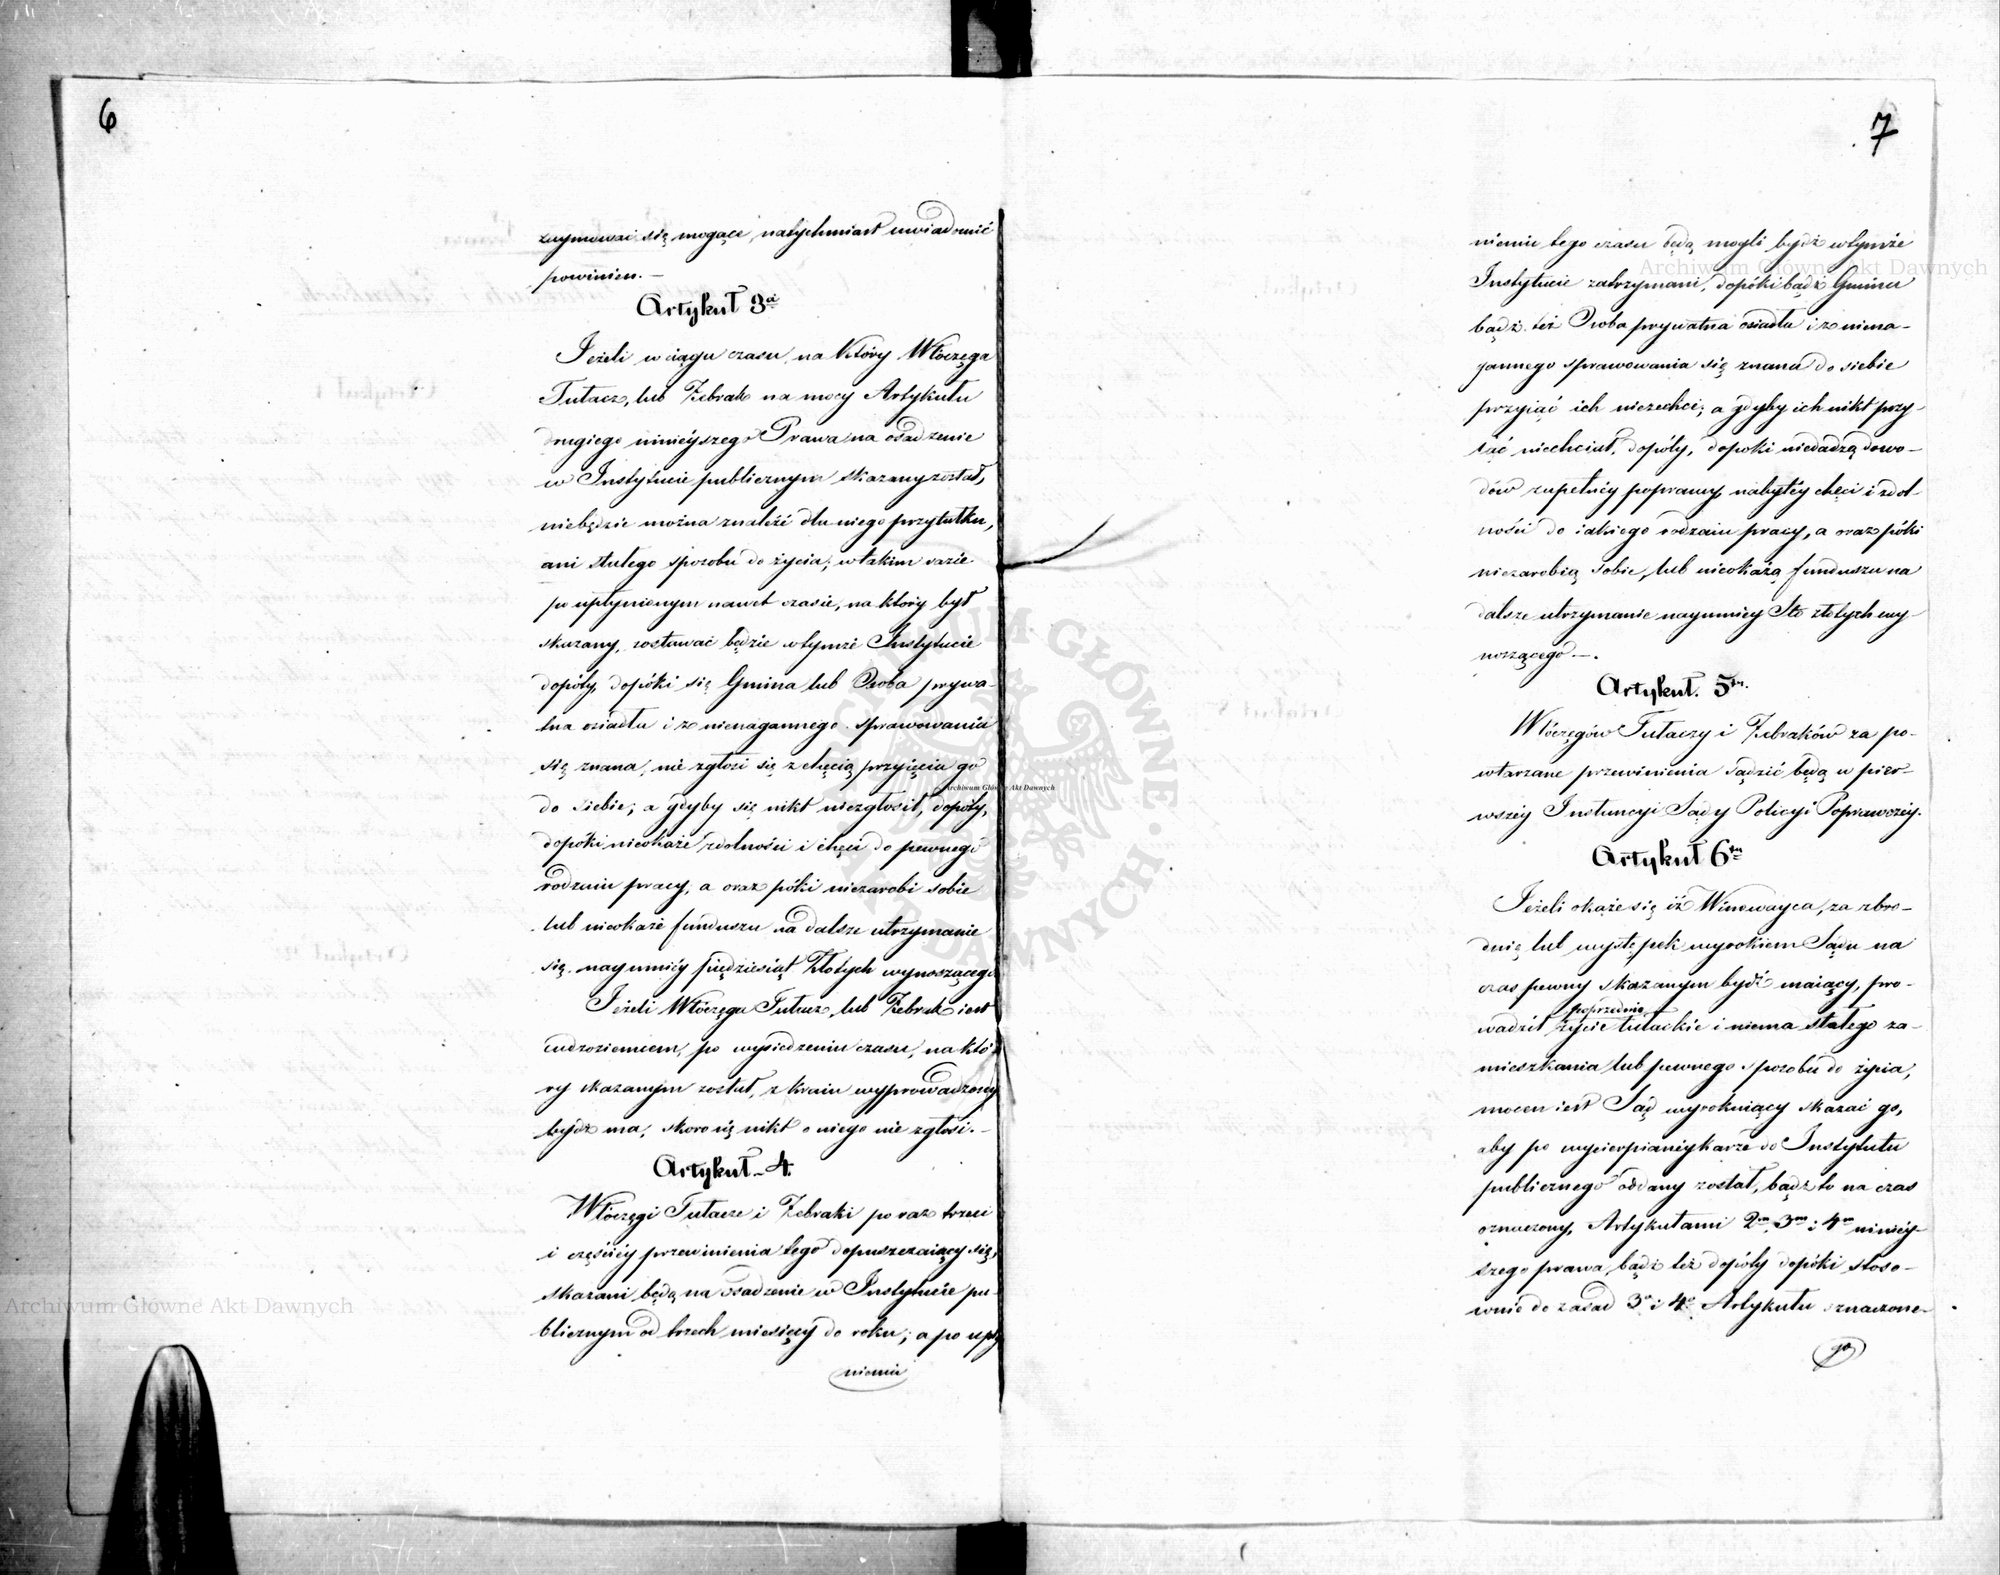 6
zaymować się mogące, natychmiast uwiadomić
powinien. —
Artykuł 3ci
Jeżeli w ciągu czasu, na który Włóczęga
Tułacz, lub Żebrak na mocy Artykułu
drugiego ninieyszego Prawa na osadzenie
w Instytucie publicznym skazany został,
niebędzie można znaleźć dla niego przytułku,
ani stałego sposobu do życia; w takim razie
po upłynionym nawet czasie, na który był
skazany, zostawać będzie w tymże Instytucie
dopóty, dopóki się Gmina lub Osoba prywa-
tna osiadła i z nienagannego sprawowania
się znana, nie zgłosi się z chęcią przyięcia go
do siebie; a gdyby się nikt niezgłosił, dopóty,
dopóki nieokaże zdolności i chęci do pewnego
rodzaiu pracy, a oraz póki niezarobi sobie
lub nieokaże funduszu na dalsze utrzymanie
się, naymniéy pięćdziesiąt Złotych wynoszącego
Jeżeli Włóczęga Tułacz, lub Żebrak iest
cudzoziemcem, po wysiedzeniu czasu, na któ-
ry skazanym został, z kraiu wyprowadzony
bydź ma, skoro się nikt o niego nie zgłosi. —
Artykuł 4.
Włóczęgi Tułacze i Żebraki po raz trzeci
i częściéy przewinienia tego dopuszczaiący się,
skazani będą na osadzenie w Instytucie pu-
blicznym od trzech miesięcy do roku; a po upły
nieniu
7
nieniu tego czasu będą mogli bydź w tymże
Instytucie zatrzymani, dopóki bądź Gmina
bądź też Osoba prywatna osiadła i z niena-
gannego sprawowania się znana do siebie
przyiąć ich niezechce; a gdyby ich nikt przy-
iąć niechciał, dopóty, dopóki niedadzą dowo-
dów zupełnéy poprawy, nabytéy chęci i zdol-
ności do iakiego rodzaiu pracy, a oraz póki
niezarobią sobie, lub nieokażą funduszu na
dalsze utrzymanie naymniéy Sto złotych wy-
noszącego —.
Artykuł. 5ty.
Włóczęgów Tułaczy i Żebraków za po-
wtarzane przewinienia sądzić będą w pier-
wszéy Instancyi Sądy Policyi Poprawczéy.
Artykuł 6ty
Jeżeli okaże się iż Winowayca, za zbro-
dnię lub występek wyrokiem Sądu na
czas pewny skazanym bydź maiący, pro-
poprzednio
wadził życie tułackie i niema stałego za-
mieszkania lub pewnego sposobu do życia,
mocen iest Sąd wyrokuiący skazać go,
aby po wycierpianéy karze do Instytutu
publicznego oddany został, bądź to na czas
oznaczony, Artykułami 2m, 3m i 4m niniéy-
szego prawa, bądź też dopóty dopóki stoso-
wnie do zasad 3o i 4o Artykułu oznaczone-
go
Archiwum Główne Akt Dawnych
Archiwum Główne Akt Dawnych
Archiwum Główne Akt Dawnych
ARCHIWUM GŁÓWNE AKT DAWNYCH